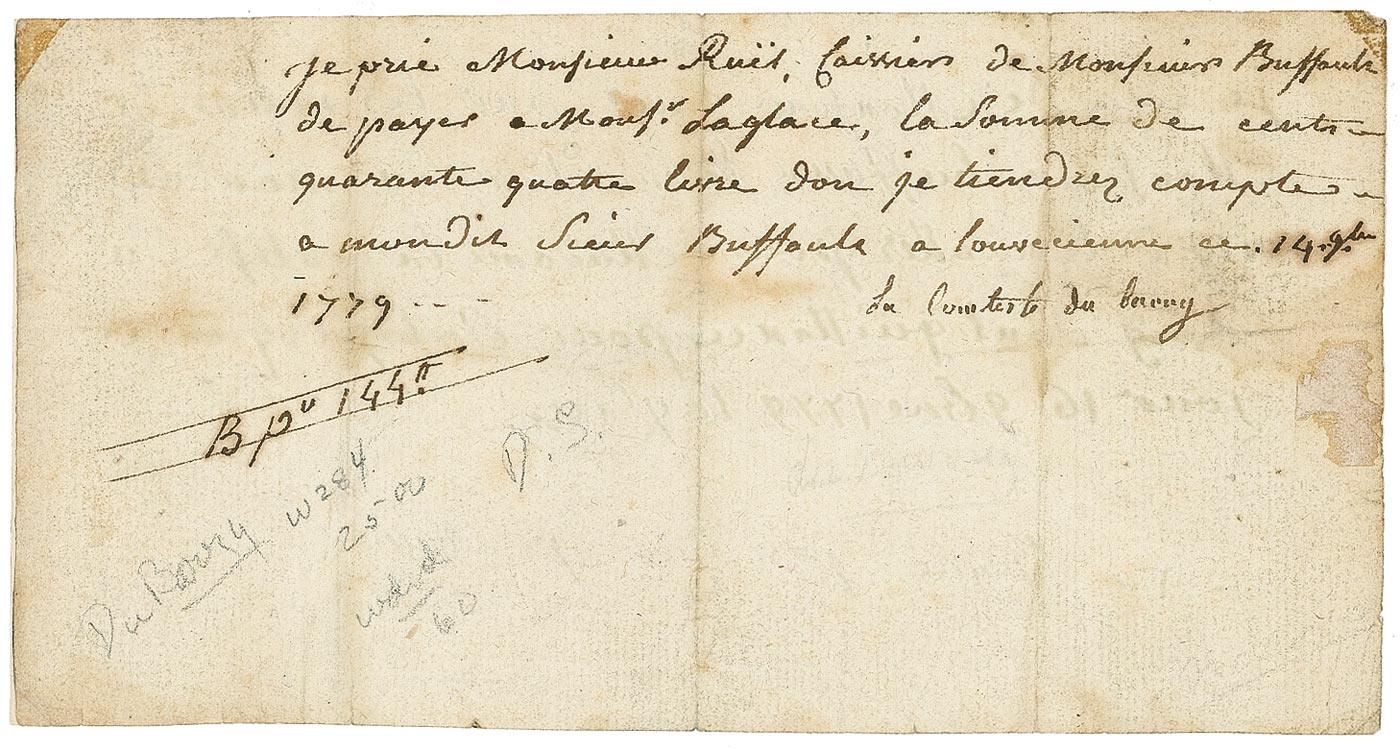 je prie Monsieur Ruët, Caissier de Monsieur Buffault
de payer a Monsr. Laglace, la Somme de cent
quarante quatre livre don je tiendrez compte
a mondit Sieur Buffault a louvecienne ce. 14. 9bre
1779 - - -
La Comtesse du barry
B pr 144ⁿ
D. S.
Du Barry W284
25-00
60